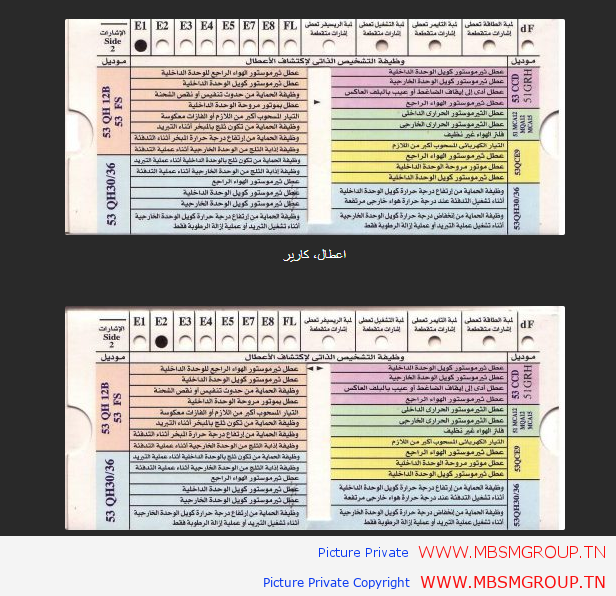 الإشارات
Side
2
E1 E2 E3 E4 E5 E7 E8 FL
لمبة الريسيفر تعطى إشارات متقطعة
لمبة التشغيل تعطى إشارات متقطعة
لمبة التايمر تعطى إشارات متقطعة
لمبة الطاقة تعطى إشارات متقطعة
dF
موديل
وظيفة التشخيص الذاتى لإكتشاف الأعطال
موديل
53 QH 12B
53 FS
عطل ثيرموستور الهواء الراجع للوحدة الداخلية
عطل ثيرموستور كويل الوحدة الداخلية
وظيفة الحماية من حدوث تنفيس أو نقص الشحنة
عطل بموتور مروحة الوحدة الداخلية
التيار المسحوب أكبر من اللازم أو الفازات معكوسة
وظيفة الحماية من تكون ثلج بالمبخر أثناء التبريد
وظيفة الحماية من إرتفاع درجة حرارة المبخر أثناء التدفئة
وظيفة إذابة الثلج من الوحدة الخارجية أثناء عملية التدفئة
53 QH30/36
وظيفة الحماية من تكون ثلج بالوحدة الداخلية أثناء عملية التبريد
وظيفة إذابة الثلج من الوحدة الخارجية أثناء عملية التدفئة
عطل ثيرموستور الهواء الراجع
عطل ثيرموستور كويل الوحدة الداخلية
عطل ثيرموستور كويل الوحدة الخارجية
وظيفة الحماية من إرتفاع درجة حرارة كويل الوحدة الخارجية
أثناء تشغيل التبريد أو عملية إزالة الرطوبة فقط
53 CCD
51GRH
عطل ثيرموستور كويل الوحدة الداخلية
عطل ثيرموستور كويل الوحدة الخارجية
عطل أدى إلى إيقاف الضاغط أو عيب بالبلف العاكس
عطل ثيرموستور الهواء الراجع
51 MCA12
MQA12
MCA15
عطل الثيرموستور الحرارى الداخلى
عطل الثيرموستور الحرارى الخارجى
فلتر الهواء غير نظيف
53QCE9
التيار الكهربائى المسحوب أكبر من اللازم
عطل ثيرموستور الهواء الراجع
عطل موتور مروحة الوحدة الداخلية
عطل ثيرموستور كويل الوحدة الداخلية
53QH30/36
وظيفة الحماية من إرتفاع درجة حرارة كويل الوحدة الداخلية
أثناء تشغيل التدفئة عند درجة حرارة هواء خارجى مرتفعة
وظيفة الحماية من إنخفاض درجة حرارة كويل الوحدة الخارجية
أثناء تشغيل التبريد أو عملية إزالة الرطوبة فقط
اعطال، كارير
الإشارات
Side
2
E1 E2 E3 E4 E5 E7 E8 FL
لمبة الريسيفر تعطى إشارات متقطعة
لمبة التشغيل تعطى إشارات متقطعة
لمبة التايمر تعطى إشارات متقطعة
لمبة الطاقة تعطى إشارات متقطعة
dF
موديل
وظيفة التشخيص الذاتى لإكتشاف الأعطال
موديل
53 QH 12B
53 FS
عطل ثيرموستور الهواء الراجع للوحدة الداخلية
عطل ثيرموستور كويل الوحدة الداخلية
وظيفة الحماية من حدوث تنفيس أو نقص الشحنة
عطل بموتور مروحة الوحدة الداخلية
التيار المسحوب أكبر من اللازم أو الفازات معكوسة
وظيفة الحماية من تكون ثلج بالمبخر أثناء التبريد
وظيفة الحماية من إرتفاع درجة حرارة المبخر أثناء التدفئة
وظيفة إذابة الثلج من الوحدة الخارجية أثناء عملية التدفئة
53 QH30/36
وظيفة الحماية من تكون ثلج بالوحدة الداخلية أثناء عملية التبريد
وظيفة إذابة الثلج من الوحدة الخارجية أثناء عملية التدفئة
عطل ثيرموستور الهواء الراجع
عطل ثيرموستور كويل الوحدة الداخلية
عطل ثيرموستور كويل الوحدة الخارجية
وظيفة الحماية من إرتفاع درجة حرارة كويل الوحدة الخارجية
أثناء تشغيل التبريد أو عملية إزالة الرطوبة فقط
53 CCD
51GRH
عطل ثيرموستور كويل الوحدة الداخلية
عطل ثيرموستور كويل الوحدة الخارجية
عطل أدى إلى إيقاف الضاغط أو عيب بالبلف العاكس
عطل ثيرموستور الهواء الراجع
51 MCA12
MQA12
MCA15
عطل الثيرموستور الحرارى الداخلى
عطل الثيرموستور الحرارى الخارجى
فلتر الهواء غير نظيف
53QCE9
التيار الكهربائى المسحوب أكبر من اللازم
عطل ثيرموستور الهواء الراجع
عطل موتور مروحة الوحدة الداخلية
عطل ثيرموستور كويل الوحدة الداخلية
53QH30/36
وظيفة الحماية من إرتفاع درجة حرارة كويل الوحدة الداخلية
أثناء تشغيل التدفئة عند درجة حرارة هواء خارجى مرتفعة
وظيفة الحماية من إنخفاض درجة حرارة كويل الوحدة الخارجية
أثناء تشغيل التبريد أو عملية إزالة الرطوبة فقط
Picture Private WWW.MBSMGROUP.TN
Picture Private Copyright WWW.MBSMGROUP.TN